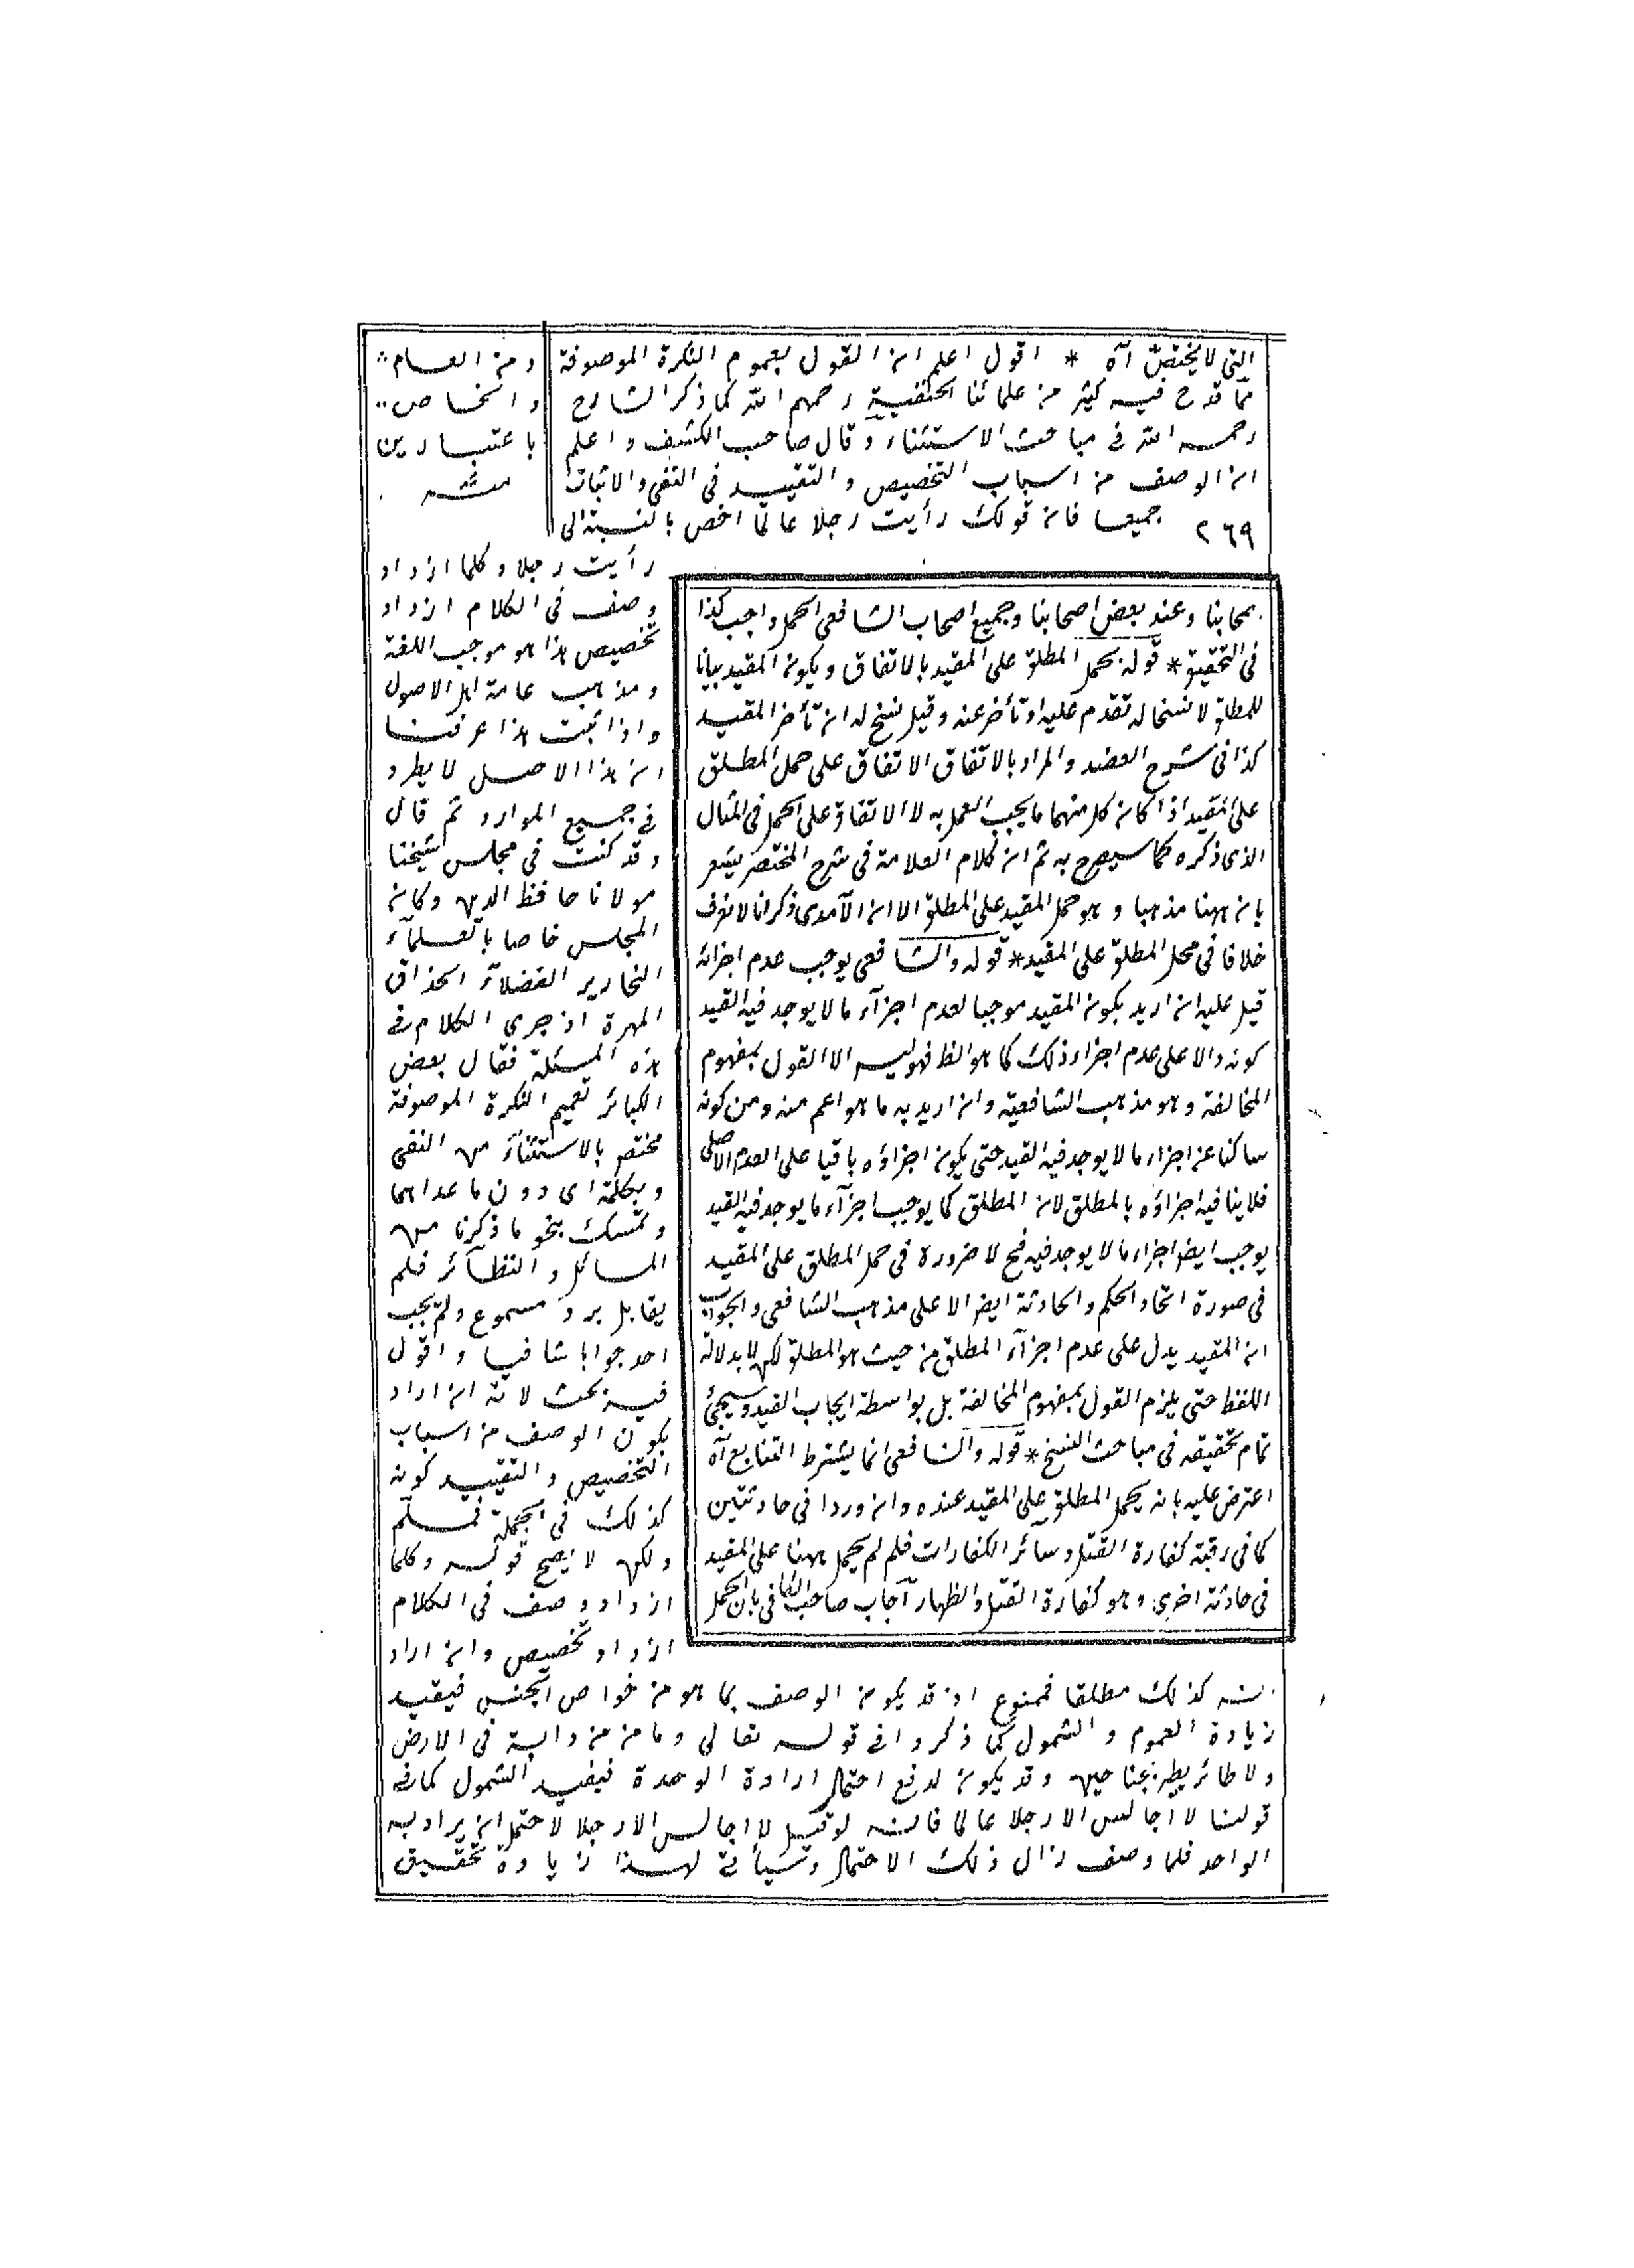 التى لا يختص آه * اقول اعلم ان القول بعموم النكرة الموصوفة
مما قدح فيه كثير من علمائنا الحنفية رحمهم الله كما ذكر الشارح
رحمه الله فى مباحث الاستثناء وقال صاحب الكشف واعلم
ان الوصف من اسباب التخصيص والتقييد فى النفى والاثبات
٢٦٩ جميعا فان قولك رأيت رجلا عالما اخص بالنسبة الى
ومن العام
والخاص
باعتبارين
منه
رأيت رجلا وكلما ازداد
وصف فى الكلام ازداد
تخصيص هذا هو موجب اللغة
ومذهب عامة اهل الاصول
واذا ثبت هذا عرفنا
ان هذا الاصل لا يطرد
فى جميع الموارد ثم قال
وقد كنت فى مجلس شيخنا
مولانا حافظ الدين وكان
المجلس غاصا بالعلماء
النحارير الفضلآء الحذاق
المهرة اذ جرى الكلام فى
هذه المسئلة فقال بعض
الكبائر تعميم النكرة الموصوفة
مختص بالاستثناء من النفى
وبكلمة اى دون ما عداهما
وتمسك بنحو ما ذكرنا من
المسائل والنظآئر فلم
يقابل برد مسموع ولم يجب
احد جوابا شافيا واقول
فيه بحث لانه ان اراد
بكون الوصف من اسباب
التخصيص والتقييد كونه
كذلك فى الجملة فمسلم
ولكن لا يصح قوله وكلما
ازداد وصف فى الكلام
ازداد تخصيص وان اراد
كذلك مطلقا فممنوع اذ قد يكون الوصف بما هو من خواص الجنس فيفيد
زيادة العموم والشمول كما ذكروا فى قوله تعالى وما من من دابة فى الارض
ولا طائر يطير بجناحيه وقد يكون لدفع احتمال ارادة الوحدة فيفيد الشمول كما فى
قولنا لا اجالس الا رجلا عالما فانه لو قيل لا اجالس الا رجلا لاحتمل ان يراد به
الواحد فلما وصف زال ذلك الاحتمال وسيأتى لهذا زيادة تحقيق
صحابنا وعند بعض اصحابنا وجميع اصحاب الشافعى الحمل واجب كذا
فى التحقيق * قوله يحمل المطلق على المقيد بالاتفاق ويكون المقيد بيانا
للمطلق لا نسخا له تقدم عليه او تأخر عنه وقيل نسخ له ان تأخر المقيد
كذا فى شرح العضد والمراد بالاتفاق الاتفاق على حمل المطلق
على المقيد اذا كان كل منهما ما يجب العمل به لا الاتفاق على الحمل فى المثال
الذى ذكره كما سيصرح به ثم ان كلام العلامة فى شرح المختصر يشعر
بان ههنا مذهبا وهو حمل المقيد على المطلق الا ان الآمدى ذكر انا لا نعرف
خلافا فى حمل المطلق على المقيد * قوله والشافعى يوجب عدم اجزائه
قيل عليه ان اريد بكون المقيد موجبا لعدم اجزآء ما لا يوجد فيه القيد
كونه دالا على عدم اجزاء ذلك كما هو الظ فهو ليس الا القول بمفهوم
المخالفة وهو مذهب الشافعية وان اريد به ما هو اعم منه ومن كونه
ساكتا عن اجزاء ما لا يوجد فيه القيد حتى يكون اجزاؤه باقيا على العدم الاصلى
فلا ينافيه اجزاؤه بالمطلق لان المطلق كما يوجب اجزآء ما يوجد فيه القيد
يوجب ايضا اجزاء ما لا يوجد فيه فح لا ضرورة فى حمل المطلق على المقيد
فى صورة اتحاد الحكم والحادثة ايضا الا على مذهب الشافعى والجواب
ان المقيد يدل على عدم اجزآء المطلق من حيث هو المطلق لكن لا بدلالة
اللفظ حتى يلزم القول بمفهوم المخالفة بل بواسطة ايجاب القيد وسيجئ
تمام تحقيقه فى مباحث النسخ * قوله والشافعى انما يشترط التتابع آه
اعترض عليه بانه يحمل المطلق على المقيد عنده وان وردا فى حادثتين
كما فى رقبة كفارة القتل وسائر الكفارات فلم لم يحمل ههنا على المقيد
فى حادثة اخرى وهو كفارة القتل والظهار اجاب صاحب الكافى بان الحمل